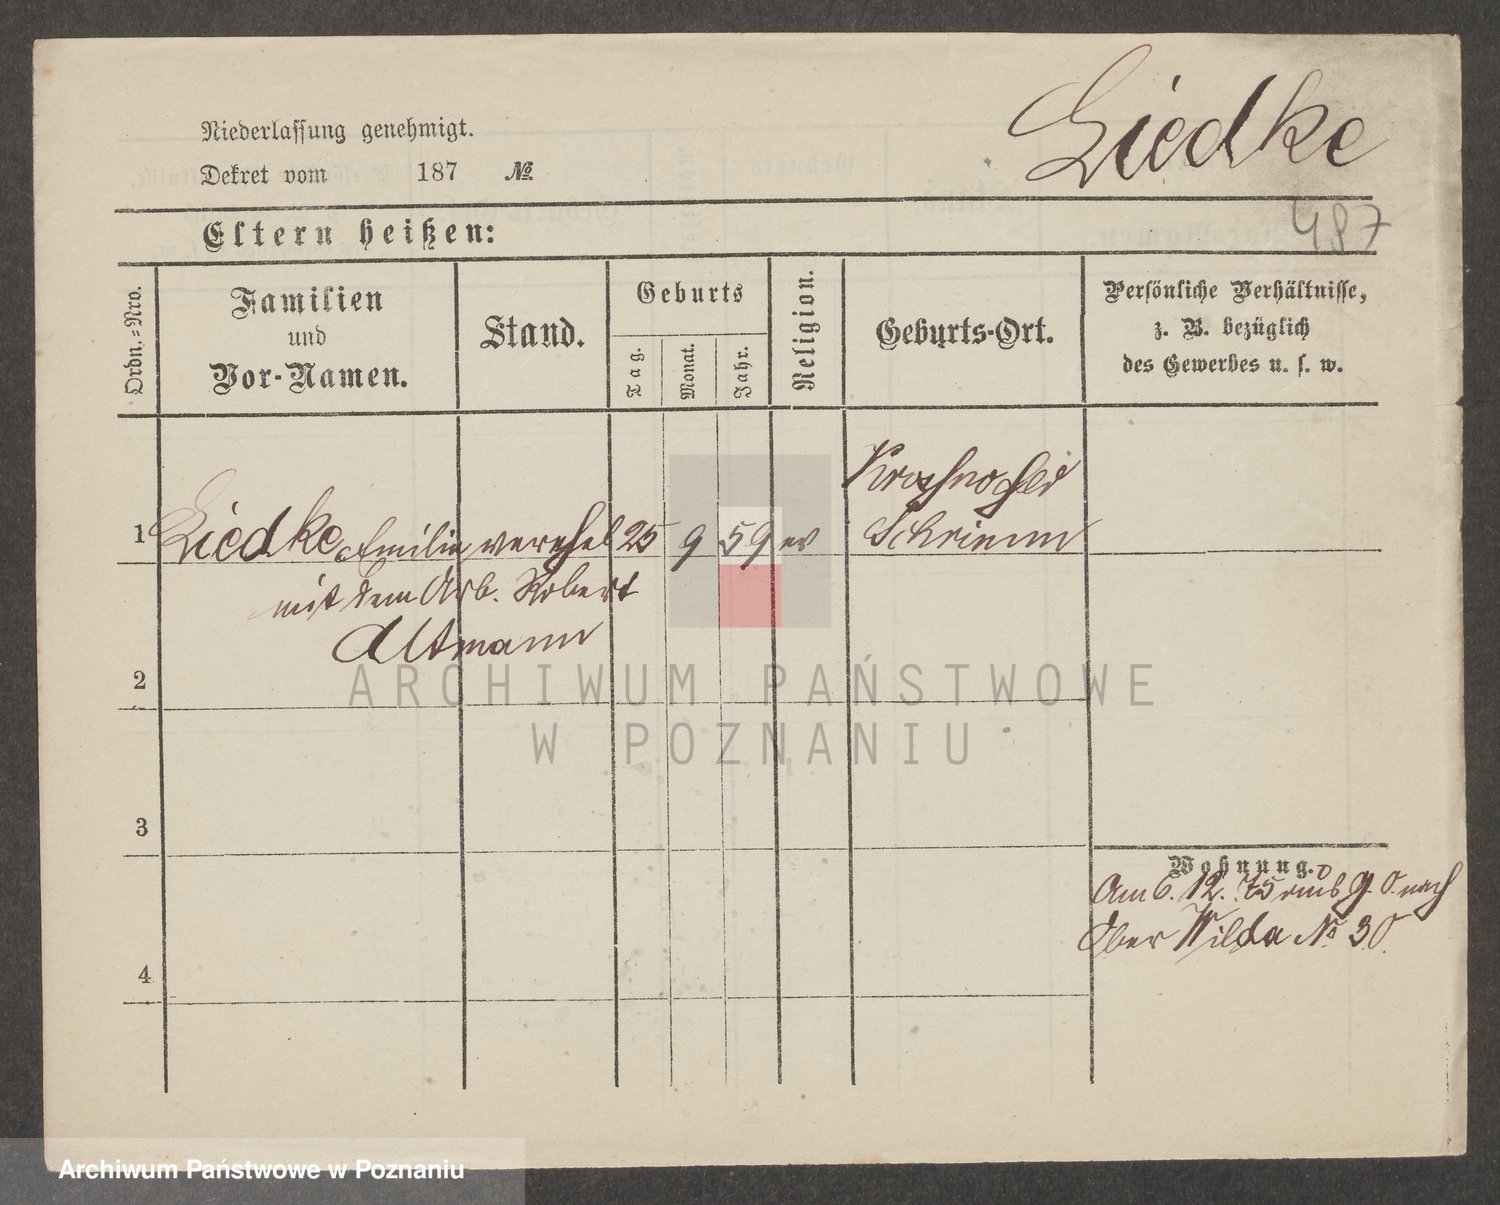 Liedke
Niederlassung genehmigt.
Dekret vom 187 №
487
Eltern heißen:
Ordn.-Nro.
Familien
und
Vor-Namen.
Stand.
Geburts
Tag.
Monat.
Jahr.
Religion.
Geburts-Ort.
Persönliche Verhältnisse,
z. B. bezüglich
des Gewerbes u. s. w.
1 Liedke Emilie verehel 25 9 59 ev
Schrimm
mit dem Arb. Robert
Altmann
2
3
4
Wohnung.
Am 6. 12. 75 nach
Ober Wilda № 30
ARCHIWUM PAŃSTWOWE
W POZNANIU
Archiwum Państwowe w Poznaniu